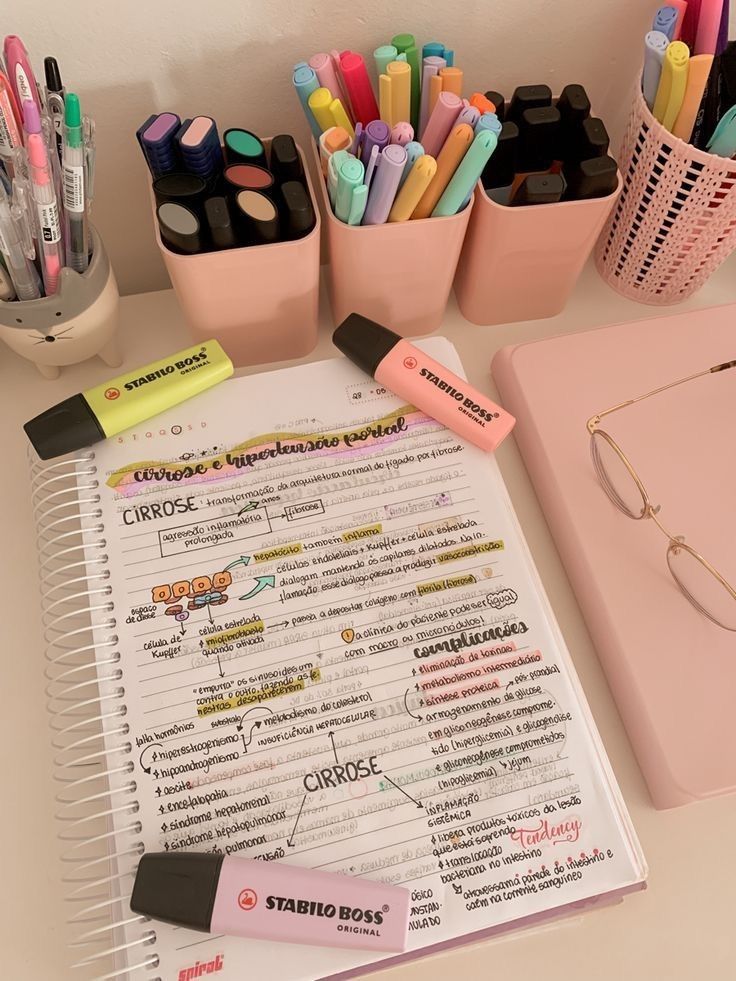 STABILO BOSS
ORIGINAL
STABILO BOSS
ORIGINAL
28 05
S T Q Q S S D
cirrose e hipertensão portal
CIRROSE: transformação da arquitetura normal do fígado por fibrose
agressão inflamatória prolongada
anos
fibrose
hepatócito também inflama
células endoteliais + Kupffer + célula estrelada
dialogam mantendo os capilares dilatados. Na in-
flamação esse diálogo passa a produzir vasoconstrição
espaço
de disse
célula de
Kupffer
célula
estrelada
miofibroblasto
quando ativada
passa a depositar colágeno com fibrila (fibrose)
a clínica do paciente pode ser igual
com macro ou micronódulos!
"empurra" os sinusoides um
contra o outro, fazendo as fe-
nestras desaparecerem
complicações
eliminação de toxinas
metabolismo intermediário
síntese proteica
pós-prandial
armazenamento de glicose
em glicogeogênese comprome-
tido (hiperglicemia) e glicogenólise
e gliconeogênese comprometidos
(hipoglicemia) jejum
falta hormônios
substrato
metabolismo do colesterol
hiperestrogenismo
hipoandrogenismo
INSUFICIÊNCIA HEPATOCELULAR
ascite
encefalopatia
síndrome hepatorrenal
síndrome hepatopulmonar
CIRROSE
INFLAMAÇÃO
SISTÊMICA
libera produtos tóxicos da lesão
que está sofrendo
translocação
bacteriana no intestino
atravessam a parede do intestino e
caem na corrente sanguínea
Tendency
STABILO BOSS
ORIGINAL
spiral